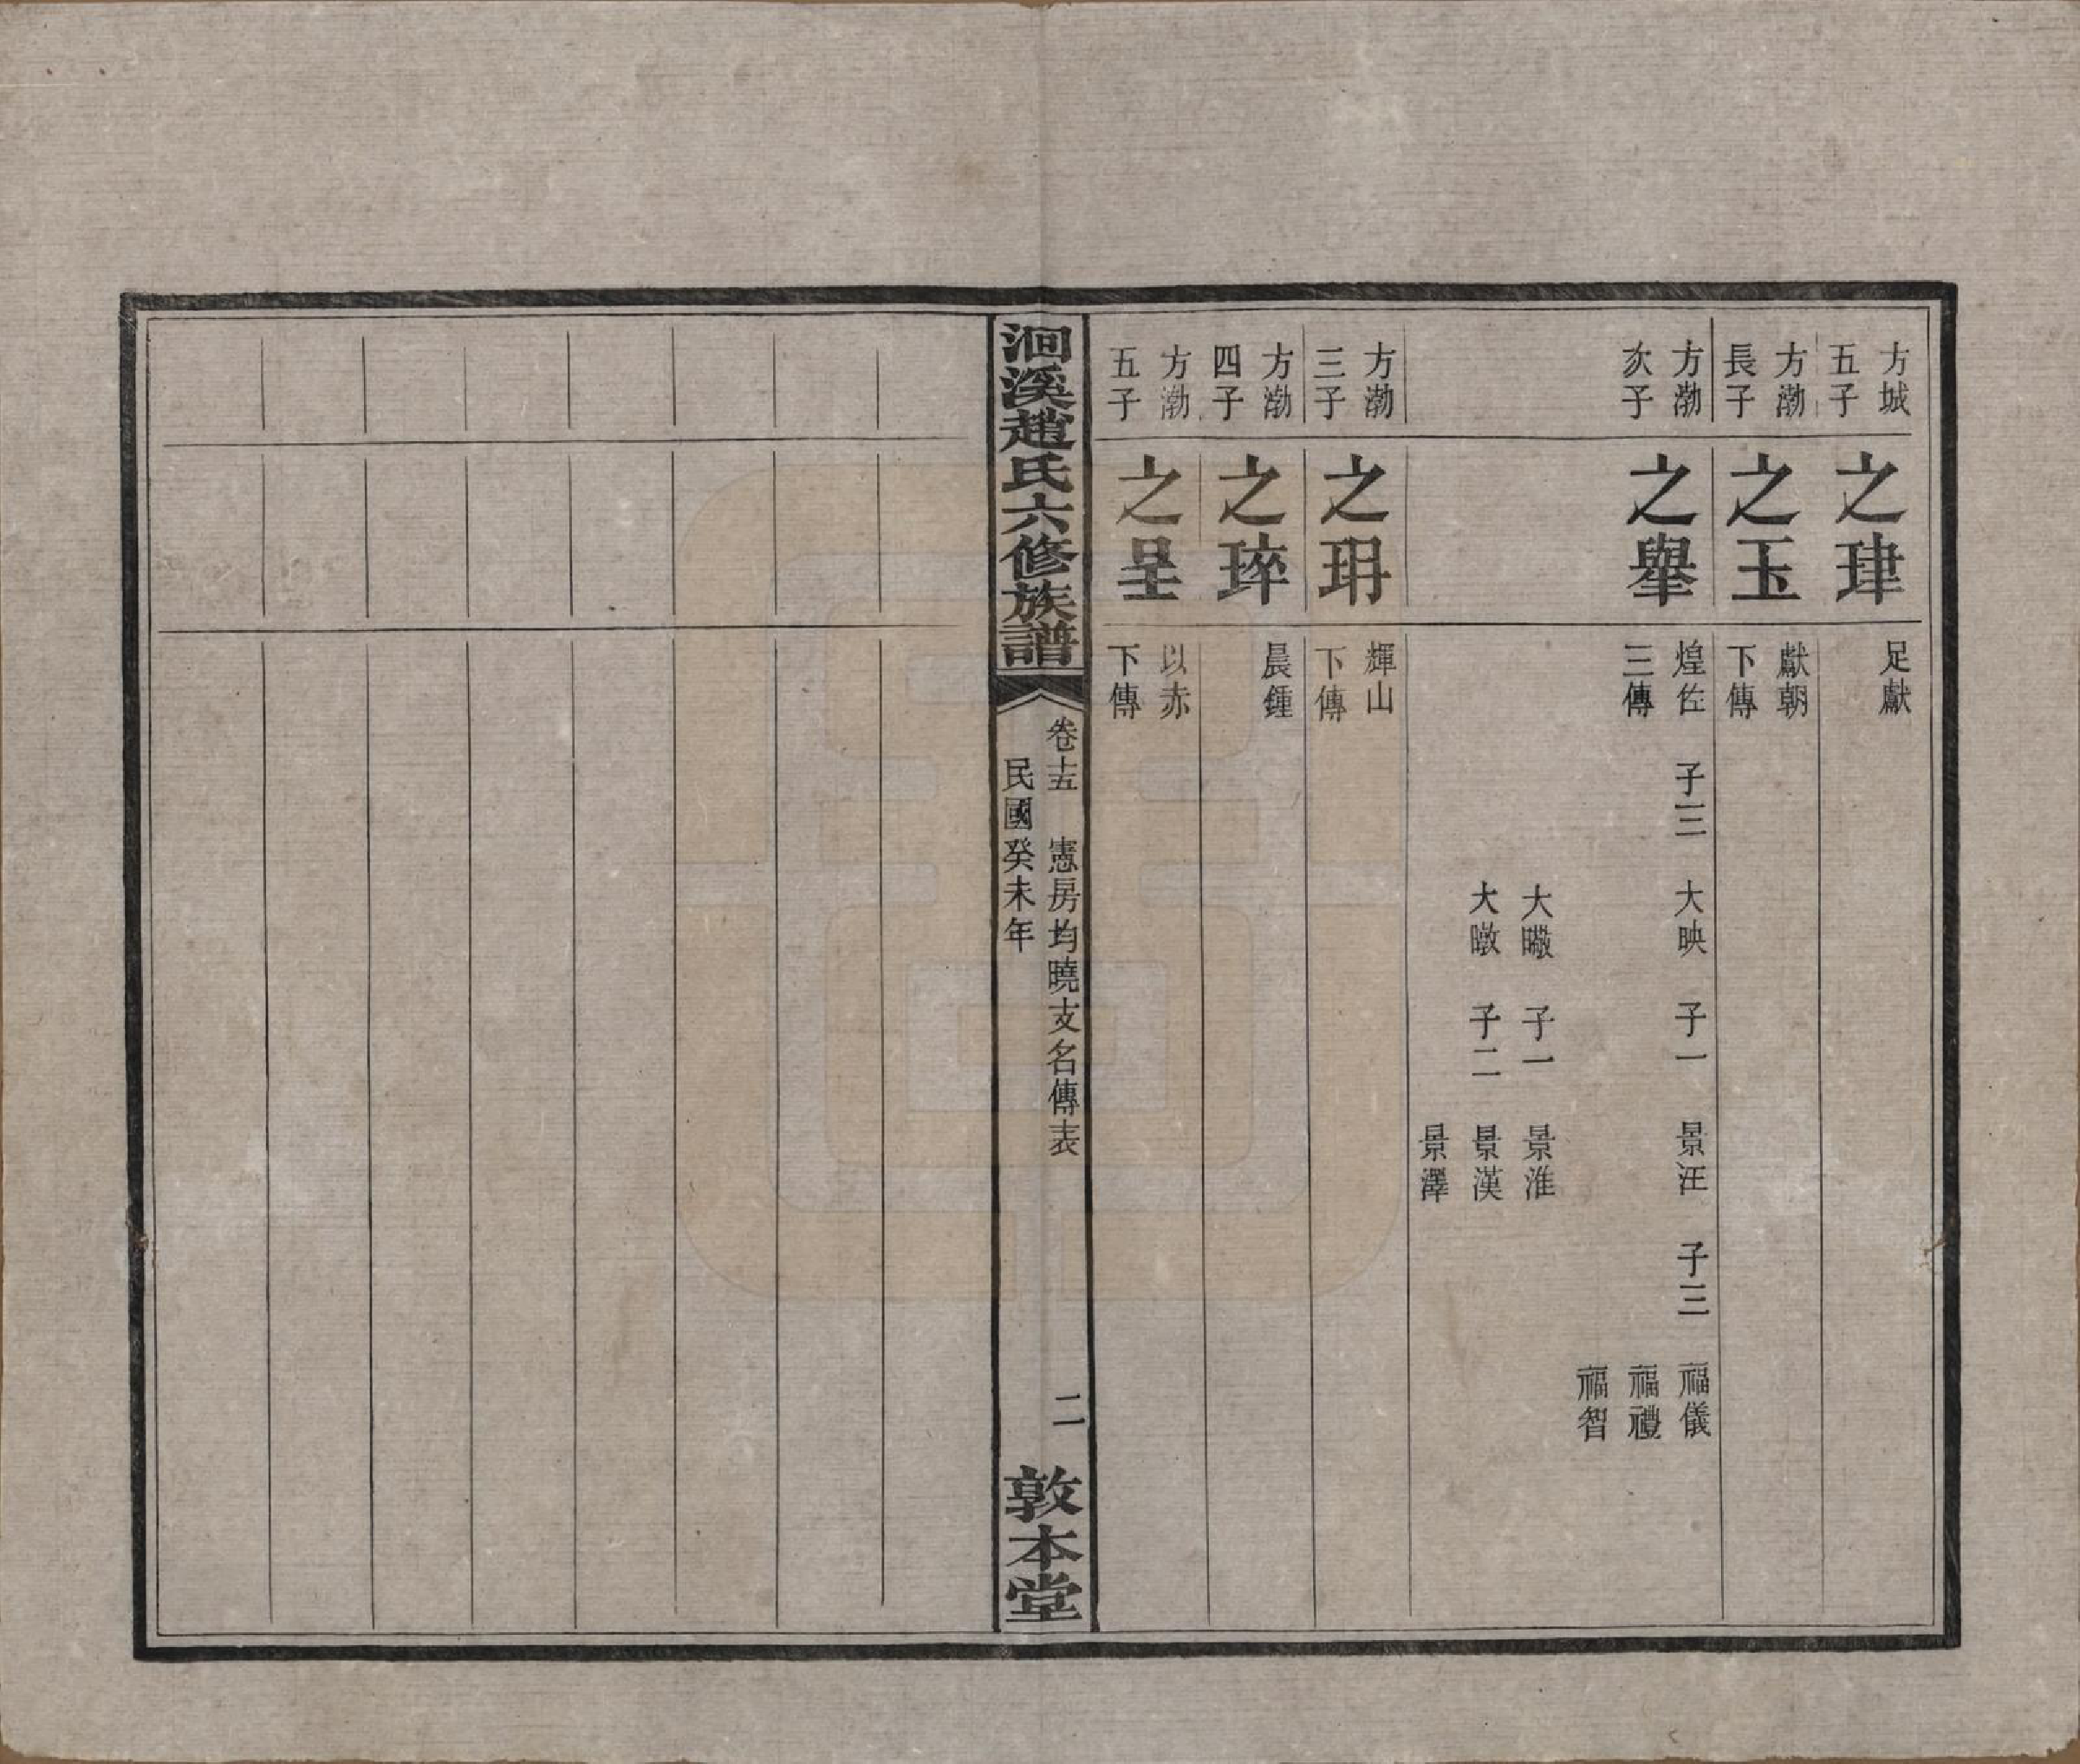 方城
五子
之珒
足獻
方渤
長子
之玉
獻朝
下傳
方渤
次子
之舉
煌佐 子三 大映 子一 景汪 子三 福儀
三傳
福禮
福智
大㬚 子一 景淮
大暾 子二 景漢
景澤
方渤
三子
之玬
輝山
下傳
方渤
四子
之琗
晨鍾
方渤
五子
之㞷
以赤
下傳
洄溪趙氏六修族譜
卷十五 憲房均曉支名傳表 二
民國癸未年
敦本堂